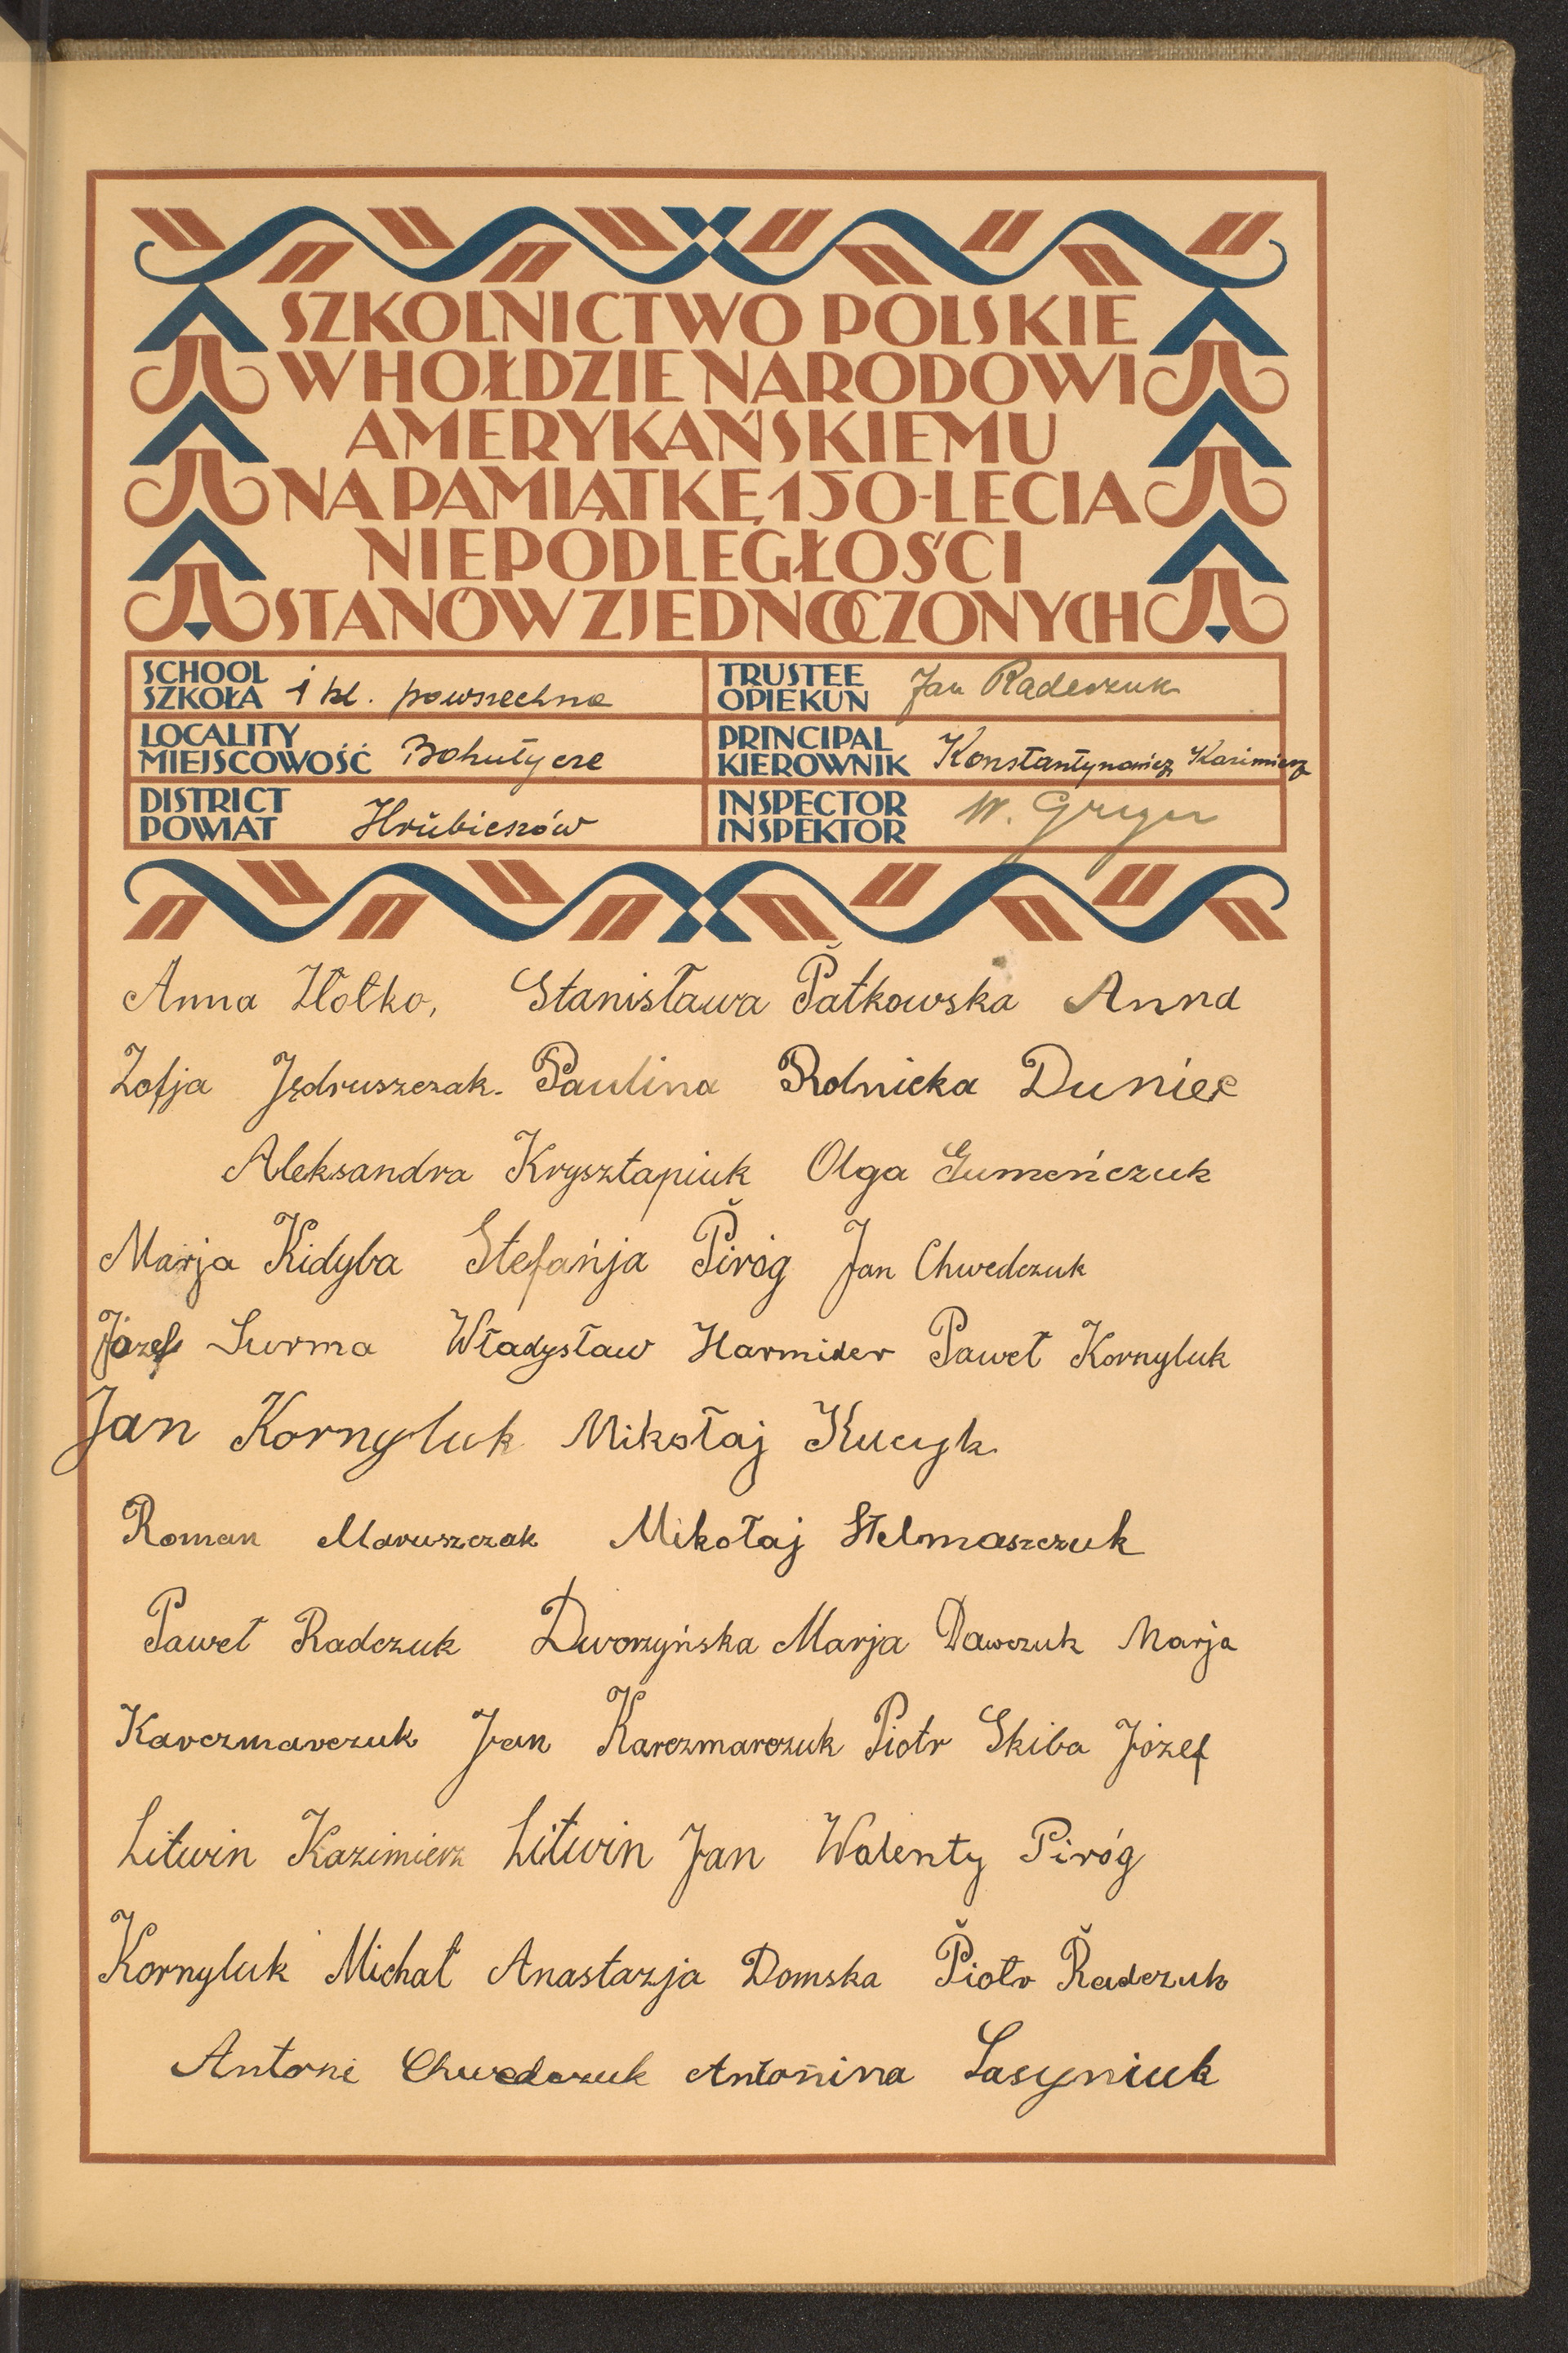 SZKOLNICTWO POLSKIE
W HOŁDZIE NARODOWI
AMERYKAŃSKIEMU
NA PAMIĄTKĘ 150-LECIA
NIEPODLEGŁOŚCI
STANÓW ZJEDNOCZONYCH
SCHOOL
SZKOŁA 1 kl. powszechna
TRUSTEE
OPIEKUN Jan Radczuk
LOCALITY
MIEJSCOWOŚĆ Bohutycze
PRINCIPAL
KIEROWNIK Konstantynowicz Kazimierz
DISTRICT
POWIAT Hrubieszów
INSPECTOR
INSPEKTOR W.
Anna Hołko, Stanisława Patkowska Anna
Zofja Jędruszczak. Paulina Rolnicka Duniec
Aleksandra Krysztapiuk Olga Gumeńczuk
Marja Kidyba Stefańja Piróg Jan Chwedczuk
Józef Surma Władysław Harmider Paweł Kornyluk
Jan Kornyluk Mikołaj Kucyk
Roman Maruszczak Mikołaj Stelmaszczuk
Paweł Radczuk Dworzyńska Marja Dawczuk Marja
Karczmarczuk Jan Karczmarczuk Piotr Skiba Józef
Litwin Kazimierz Litwin Jan Walenty Piróg
Kornyluk Michał Anastazja Domska Piotr Radczuk
Antoni Chwedczuk Antonina Sasyniuk